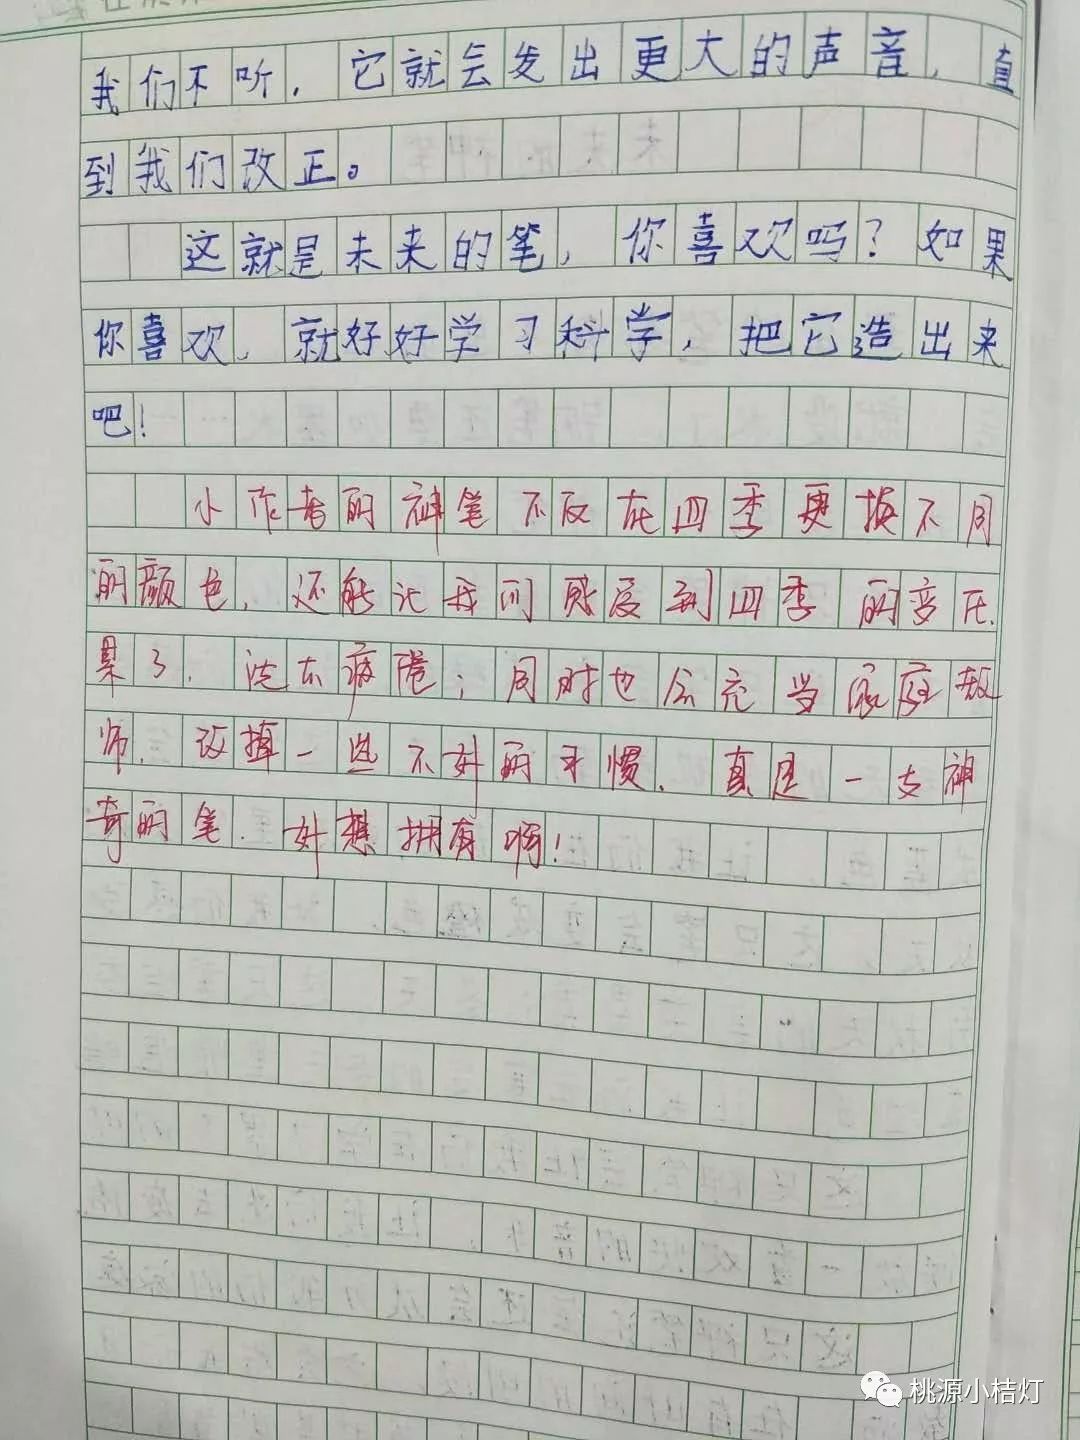 我们不听，它就会发出更大的声音，直
到我们改正。
这就是未来的笔，你喜欢吗？如果
你喜欢，就好好学习科学，把它造出来
吧！
小作者的神笔不仅在四季更换不同
的颜色，还能让我们感受到四季的变化.
累了.洗去疲倦；同时也会充当家庭教
师.改掉一些不好的习惯.真是一支神
奇的笔.好想拥有啊！
桃源小桔灯